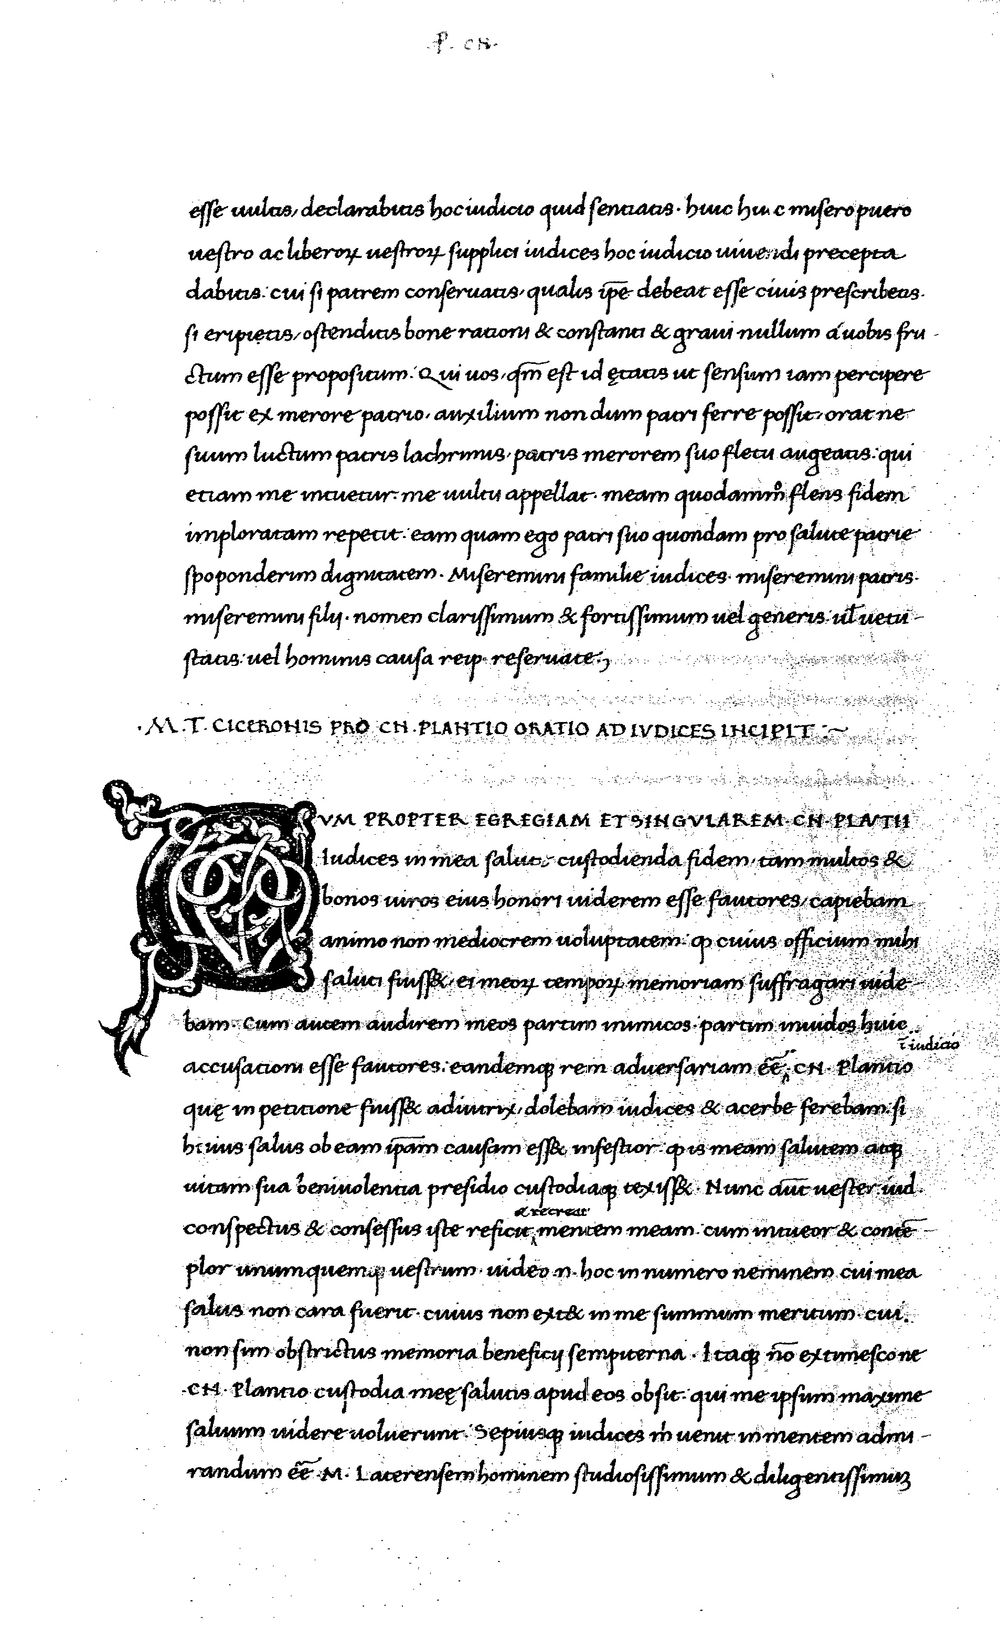 .P. CN.
esse uultis, declarabitis hoc iudicio quid sentiatis. huic huic misero puero
uestro ac liberoꝝ uestroꝝ supplici iudices hoc iudicio uiuendi precepta
dabitis: cui si patrem conseruatis, qualis ip̄e debeat esse ciuis prescribetis.
si eripietis, ostenditis bone rationi & constanti & graui nullum a uobis fru-
ctum esse propositum. Qui uos, qm̄ est id ętatis ut sensum iam percipere
possit ex merore patrio, auxilium non dum patri ferre possit, orat ne
suum luctum patris lachrimis, patris merorem suo fletu augeatis: qui
etiam me intuetur: me uultu appellat. meam quodammo flens fidem
imploratam repetit: eam quam ego patri suo quondam pro salute patrie
spoponderim dignitatem. Miseremini familie iudices. miseremini patris.
miseremini filij. nomen clarissimum & fortissimum uel generis. ul̄ uetu-
statis: uel hominis causa reip. reseruate:,
.M. T. CICERONIS PRO CN. PLANTIO ORATIO AD IVDICES INCIPIT :~
CVM PROPTER EGREGIAM ET SINGVLAREM CN. PLATII
Iudices in mea salut. custodienda fidem, tam multos &
bonos uiros eius honori uiderem esse fautores, capiebam
animo non mediocrem uoluptatem: ꝙ cuius officium mihi
saluti fuiss&, ei meoꝝ tempoꝝ memoriam suffragari uide-
bam. Cum autem audirem meos partim inimicos. partim inuidos huic
ī iudicio
accusationi esse fautores: eandemqꝫ rem aduersariam eē CN. Plantio
quę in petitione fuiss& adiutrix, dolebam iudices & acerbe ferebam. si
huius salus ob eam ip̄am causam ess& infestior. ꝙ is meam salutem atqꝫ
uitam sua beniuolentia presidio custodiaqꝫ texiss&. Nunc aūt uester iud.
& recreat
conspectus & consessus iste reficit mentem meam. cum intueor & contē-
plor unumquemqꝫ uestrum. uideo .n. hoc in numero neminem cui mea
salus non cara fuerit. cuius non ext& in me summum meritum. cui.
non sim obstrictus memoria beneficij sempiterna. Itaqꝫ nō extimesco ne
CN. Plantio custodia meę salutis apud eos obsit. qui me ipsum maxime
saluum uidere uoluerunt. Sepiusqꝫ iudices m̄ uenit in mentem admi-
randum eē .M. Laterensem hominem studiosissimum & diligentissimuꝫ